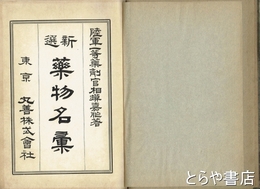 陸軍一等藥劑官相澤嘉聰著
新選
藥物名彙
東京 丸善株式會社
とらや書店